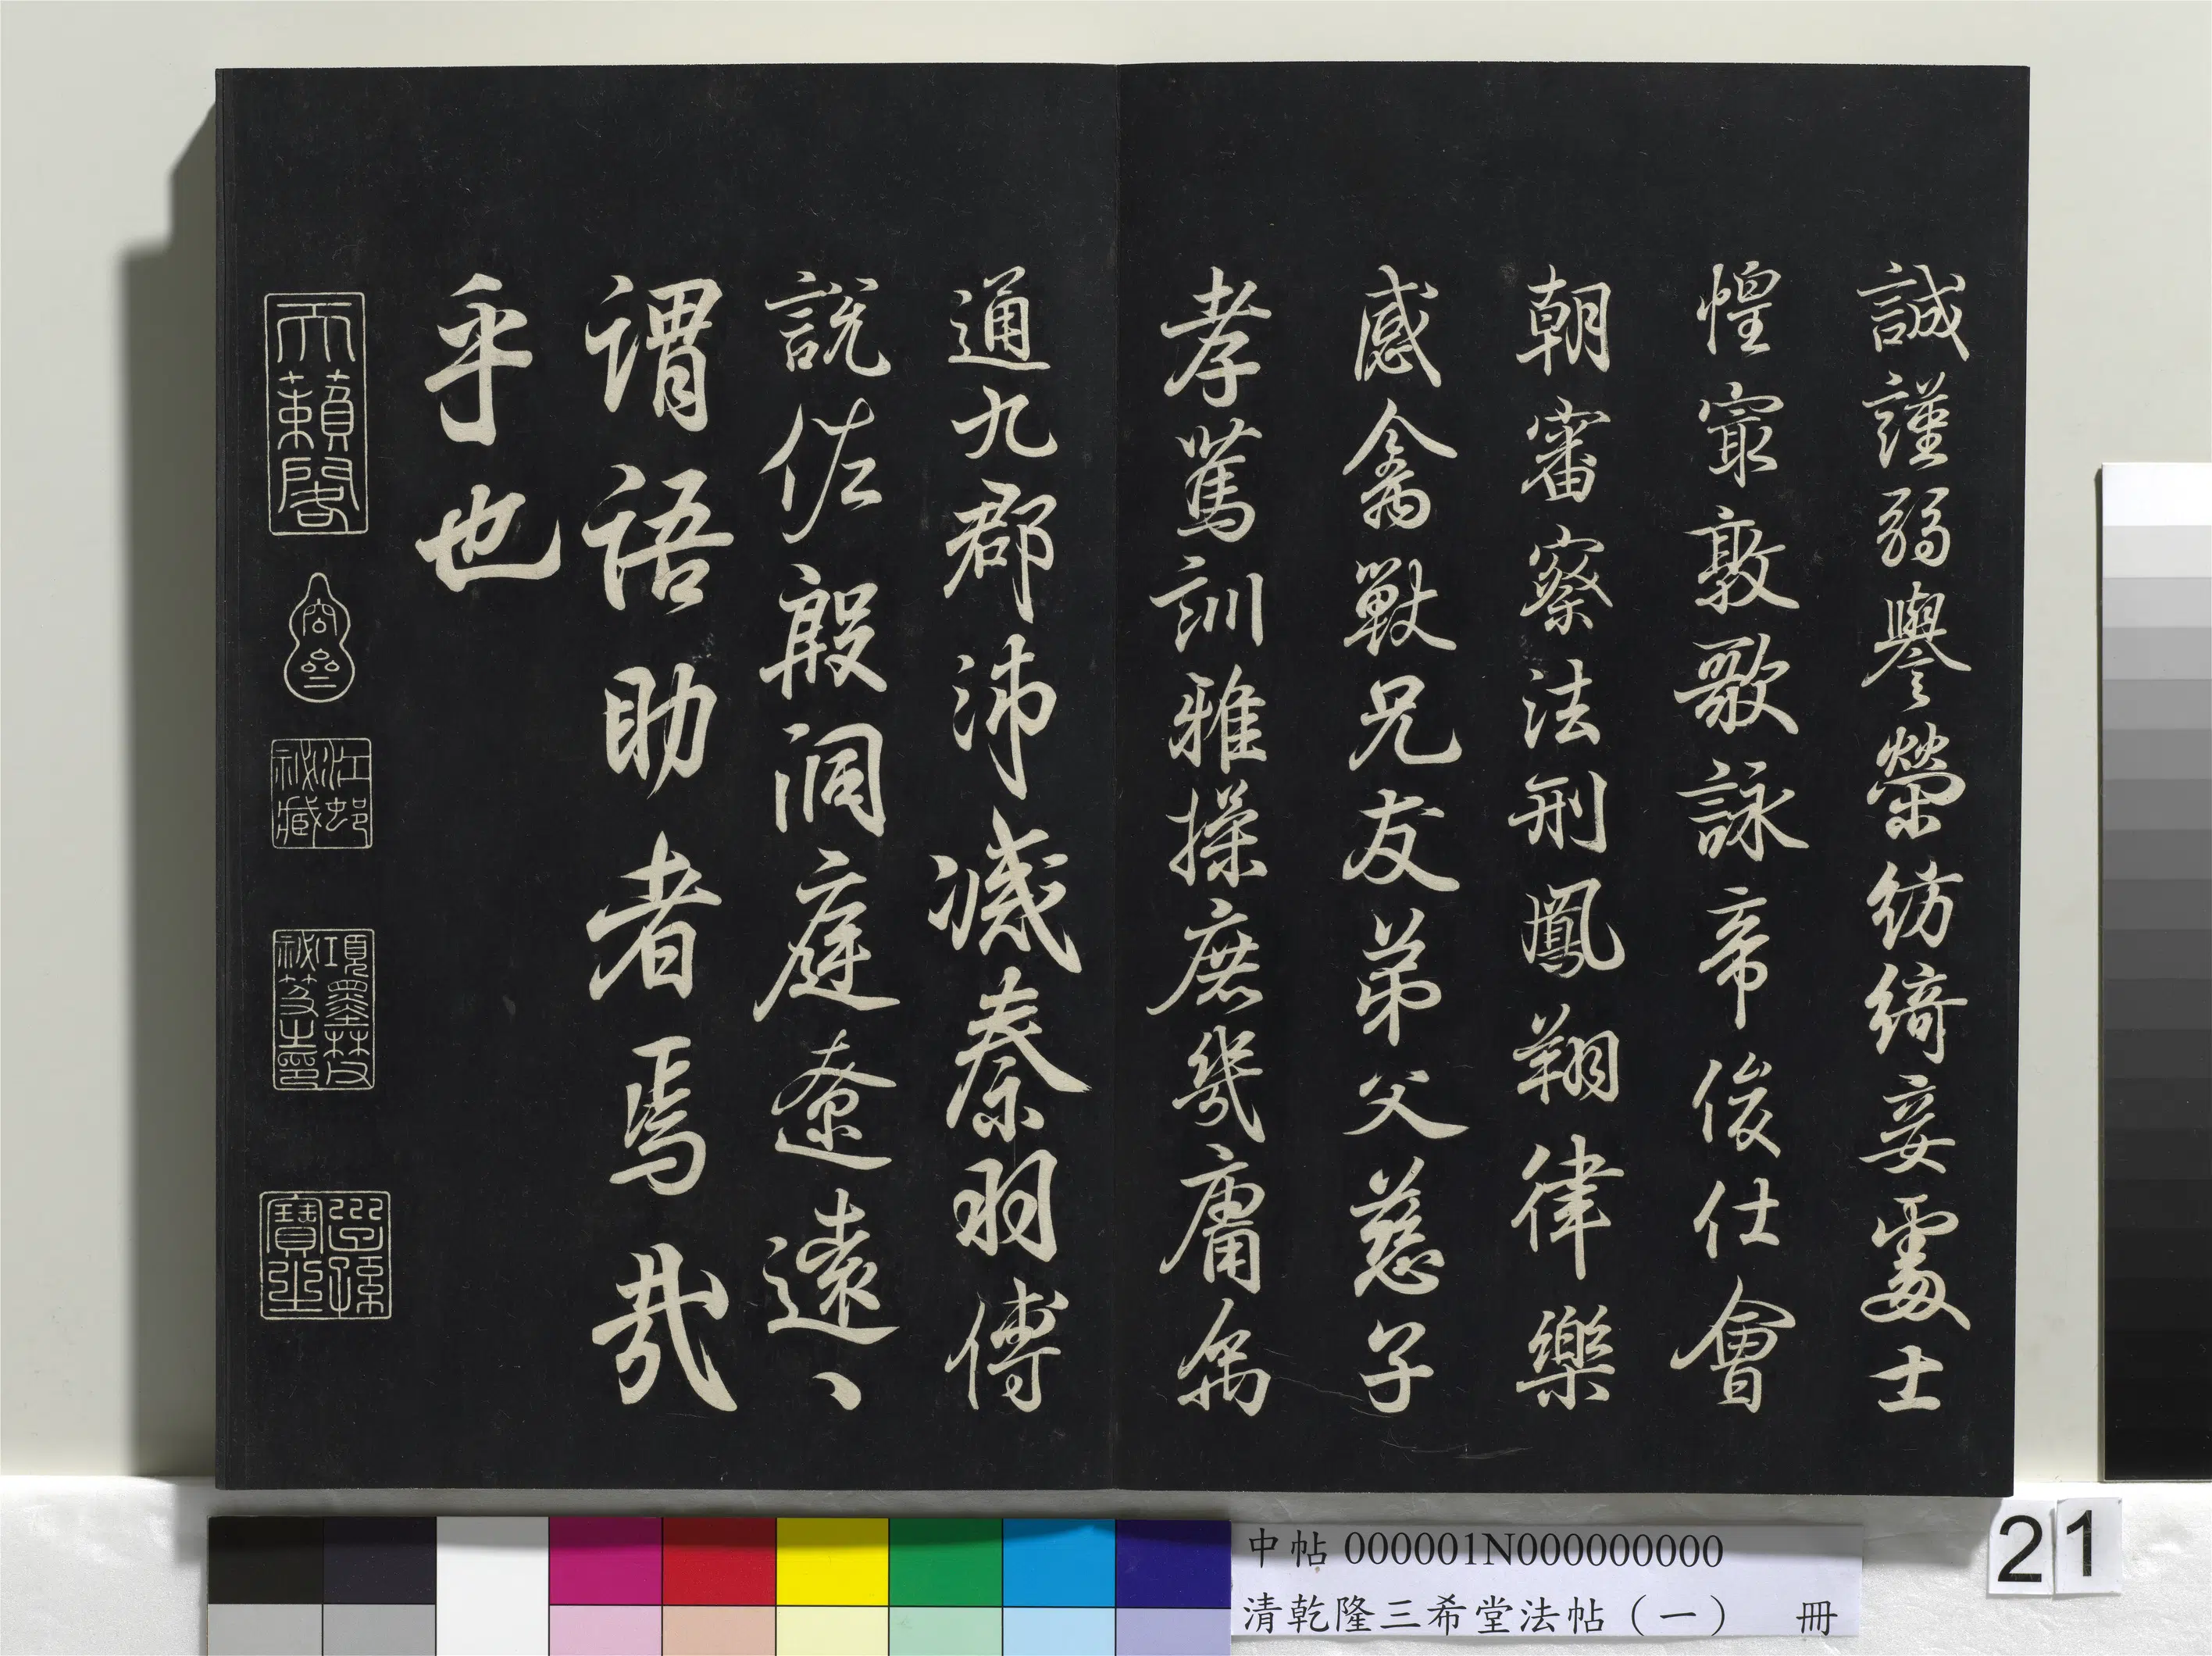 誠謹弱譽榮紡綺妾處士
惶最敦歌詠帝俊仕會
朝審察法刑鳳翔律樂
感禽獸兄友弟父慈子
孝篤訓雅操庶幾庸爲
通九郡沛滅秦羽傅
說佐殷洞庭遼遠丶
謂語助者焉哉
乎也
天籟閣
公
江邨
祕藏
項墨林父
祕笈之印
子孫
寶
中帖 000001N000000000
清乾隆三希堂法帖（一） 冊
21